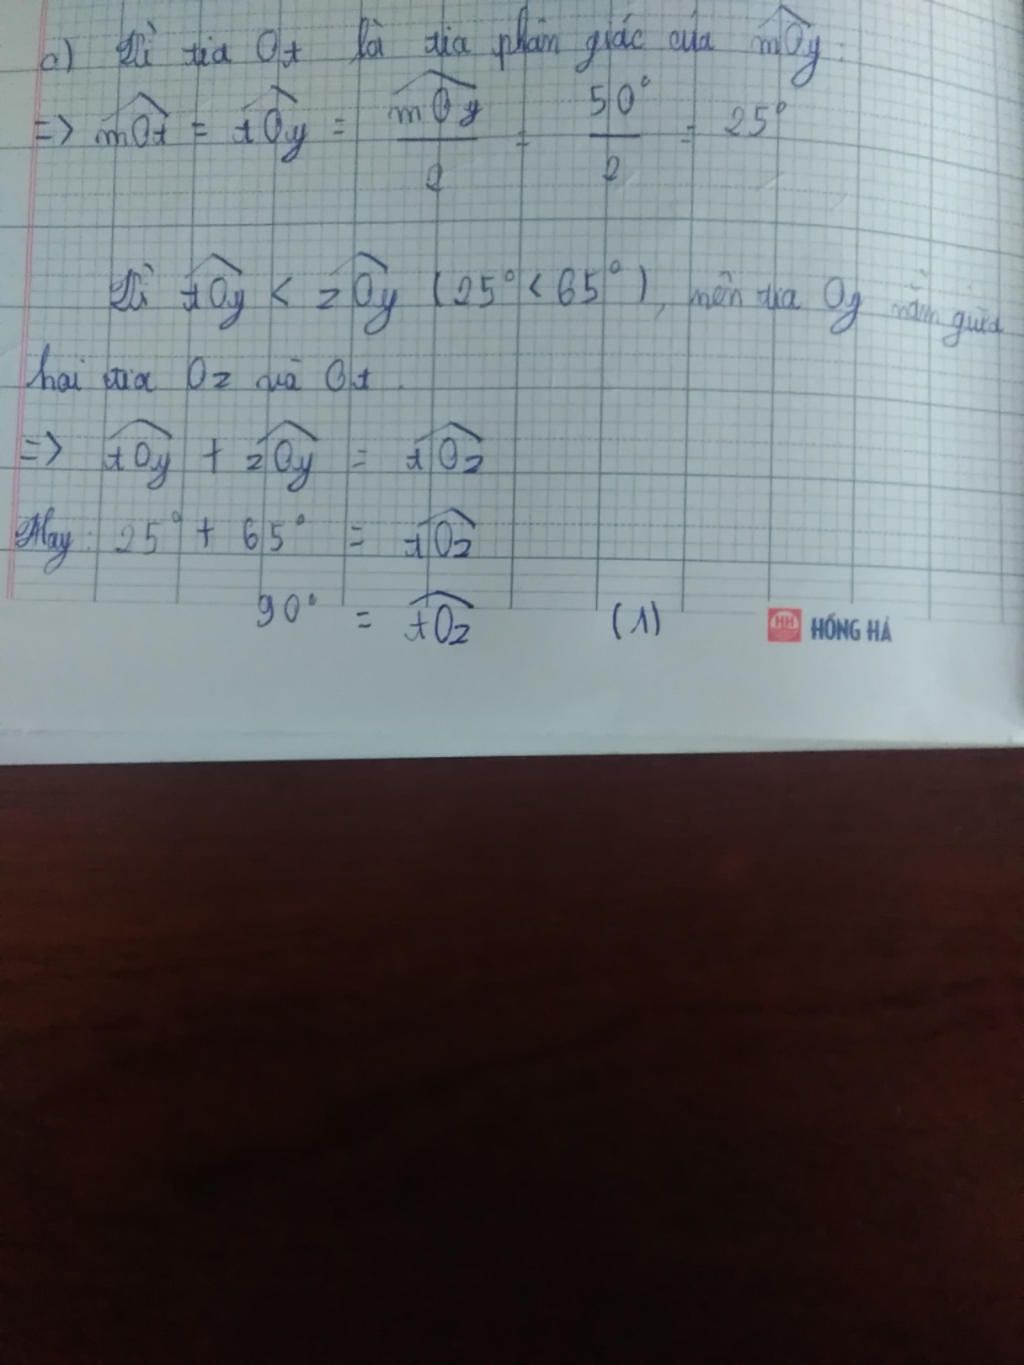 c) Vì tia Ot là tia phân giác của mOy.
=> mOt = tOy = mOy / 2 = 50° / 2 = 25°
Vì tOy < zOy (25° < 65°), nên tia Oy nằm giữa
hai tia Oz và Ot.
=> tOy + zOy = tOz
Hay: 25° + 65° = tOz
90° = tOz (1)
HH HỒNG HÀ